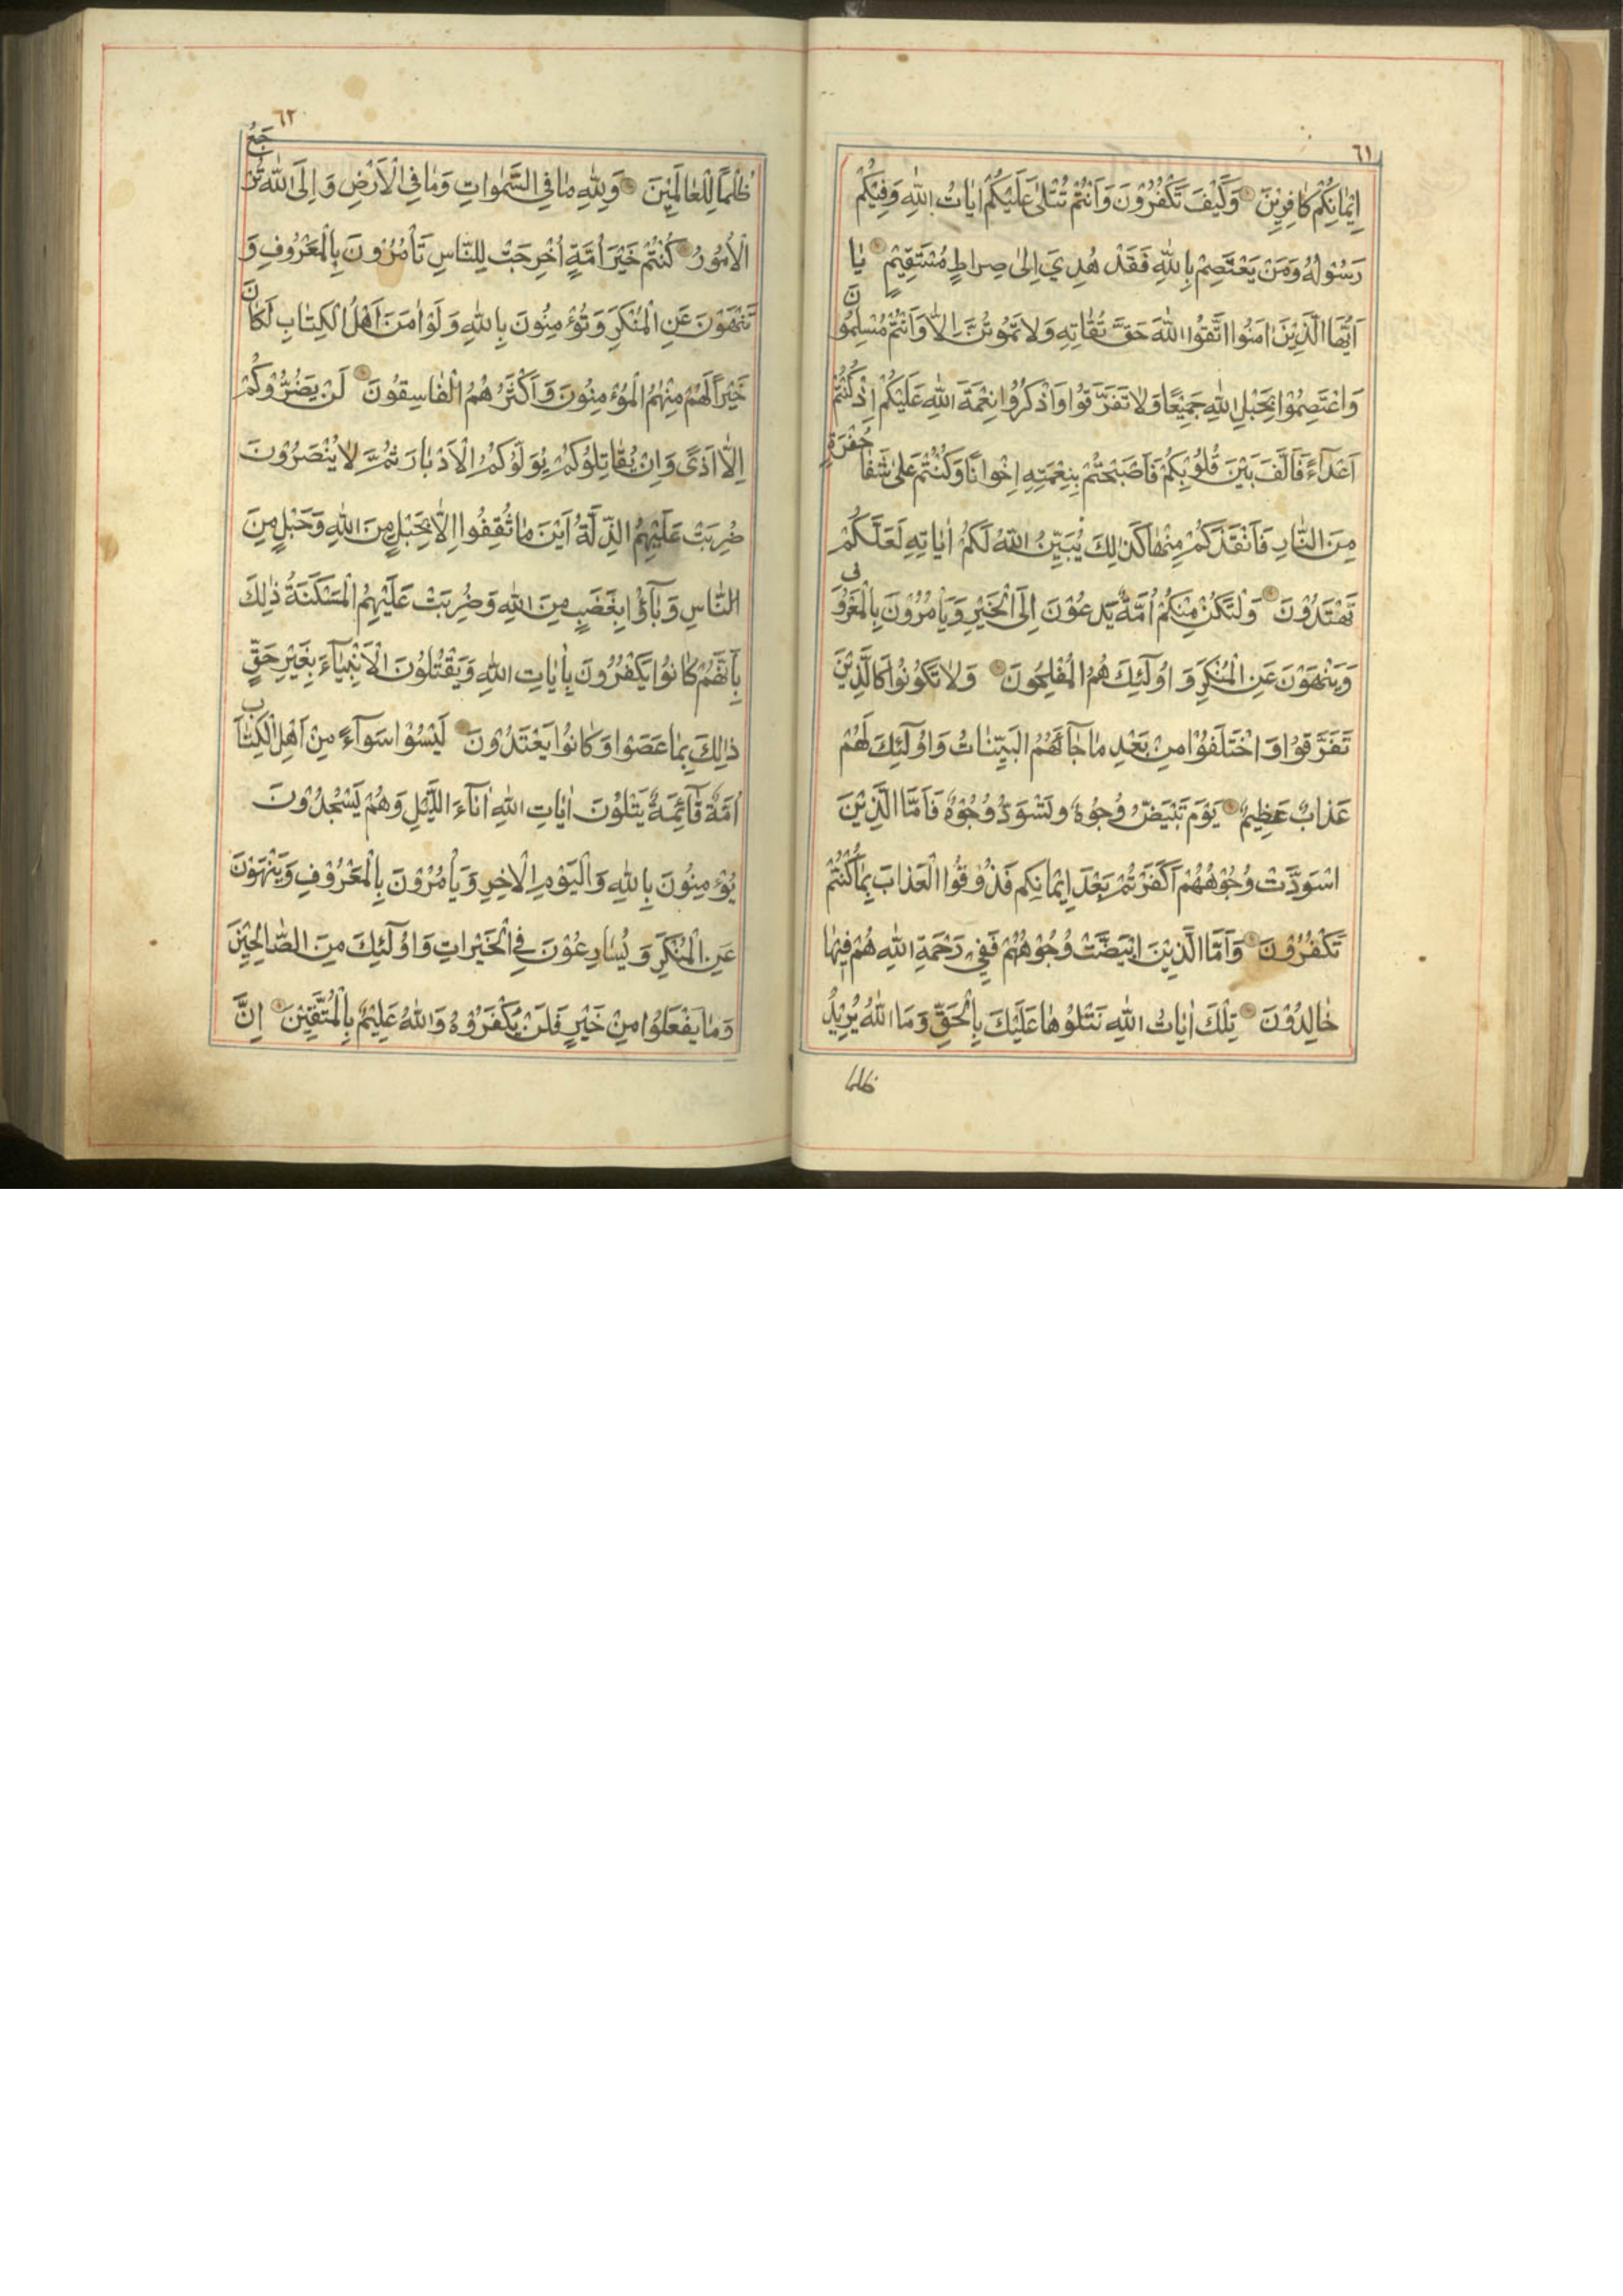 ٦١
اِيْمَانِكُمْ كَافِرِيْنَ وَكَيْفَ تَكْفُرُوْنَ وَاَنْتُمْ تُتْلٰى عَلَيْكُمْ اٰيَاتُ اللّٰهِ وَفِيْكُمْ
رَسُوْلُهُ وَمَنْ يَعْتَصِمْ بِاللّٰهِ فَقَدْ هُدِيَ اِلٰى صِرَاطٍ مُسْتَقِيْمٍ يَا
اَيُّهَا الَّذِيْنَ اٰمَنُوا اتَّقُوا اللّٰهَ حَقَّ تُقَاتِهِ وَلَا تَمُوْتُنَّ اِلَّا وَاَنْتُمْ مُسْلِمُوْنَ
وَاعْتَصِمُوْا بِحَبْلِ اللّٰهِ جَمِيْعًا وَلَا تَفَرَّقُوْا وَاذْكُرُوْا نِعْمَةَ اللّٰهِ عَلَيْكُمْ اِذْ كُنْتُمْ
اَعْدَآءً فَاَلَّفَ بَيْنَ قُلُوْبِكُمْ فَاَصْبَحْتُمْ بِنِعْمَتِهِ اِخْوَانًا وَكُنْتُمْ عَلٰى شَفَا حُفْرَةٍ
مِنَ النَّارِ فَاَنْقَذَكُمْ مِنْهَا كَذٰلِكَ يُبَيِّنُ اللّٰهُ لَكُمْ اٰيَاتِهِ لَعَلَّكُمْ
تَهْتَدُوْنَ وَلْتَكُنْ مِنْكُمْ اُمَّةٌ يَدْعُوْنَ اِلَى الْخَيْرِ وَيَأْمُرُوْنَ بِالْمَعْرُوْفِ
وَيَنْهَوْنَ عَنِ الْمُنْكَرِ وَاُولٰٓئِكَ هُمُ الْمُفْلِحُوْنَ وَلَا تَكُوْنُوْا كَالَّذِيْنَ
تَفَرَّقُوْا وَاخْتَلَفُوْا مِنْ بَعْدِ مَا جَآءَهُمُ الْبَيِّنَاتُ وَاُولٰٓئِكَ لَهُمْ
عَذَابٌ عَظِيْمٌ يَوْمَ تَبْيَضُّ وُجُوْهٌ وَتَسْوَدُّ وُجُوْهٌ فَاَمَّا الَّذِيْنَ
اسْوَدَّتْ وُجُوْهُهُمْ اَكَفَرْتُمْ بَعْدَ اِيْمَانِكُمْ فَذُوْقُوا الْعَذَابَ بِمَا كُنْتُمْ
تَكْفُرُوْنَ وَاَمَّا الَّذِيْنَ ابْيَضَّتْ وُجُوْهُهُمْ فَفِيْ رَحْمَةِ اللّٰهِ هُمْ فِيْهَا
خَالِدُوْنَ تِلْكَ اٰيَاتُ اللّٰهِ نَتْلُوْهَا عَلَيْكَ بِالْحَقِّ وَمَا اللّٰهُ يُرِيْدُ
ظلما
٦٢
ظُلْمًا لِلْعَالَمِيْنَ وَلِلّٰهِ مَا فِي السَّمٰوَاتِ وَمَا فِي الْاَرْضِ وَاِلَى اللّٰهِ تُرْجَعُ
الْاُمُوْرُ كُنْتُمْ خَيْرَ اُمَّةٍ اُخْرِجَتْ لِلنَّاسِ تَأْمُرُوْنَ بِالْمَعْرُوْفِ وَ
تَنْهَوْنَ عَنِ الْمُنْكَرِ وَتُؤْمِنُوْنَ بِاللّٰهِ وَلَوْ اٰمَنَ اَهْلُ الْكِتَابِ لَكَانَ
خَيْرًا لَهُمْ مِنْهُمُ الْمُؤْمِنُوْنَ وَاَكْثَرُهُمُ الْفَاسِقُوْنَ لَنْ يَضُرُّوْكُمْ
اِلَّا اَذًى وَاِنْ يُقَاتِلُوْكُمْ يُوَلُّوْكُمُ الْاَدْبَارَ ثُمَّ لَا يُنْصَرُوْنَ
ضُرِبَتْ عَلَيْهِمُ الذِّلَّةُ اَيْنَ مَا ثُقِفُوْا اِلَّا بِحَبْلٍ مِنَ اللّٰهِ وَحَبْلٍ مِنَ
النَّاسِ وَبَآؤُا بِغَضَبٍ مِنَ اللّٰهِ وَضُرِبَتْ عَلَيْهِمُ الْمَسْكَنَةُ ذٰلِكَ
بِاَنَّهُمْ كَانُوْا يَكْفُرُوْنَ بِاٰيَاتِ اللّٰهِ وَيَقْتُلُوْنَ الْاَنْبِيَآءَ بِغَيْرِ حَقٍّ
ذٰلِكَ بِمَا عَصَوْا وَكَانُوْا يَعْتَدُوْنَ لَيْسُوْا سَوَآءً مِنْ اَهْلِ الْكِتَابِ
اُمَّةٌ قَآئِمَةٌ يَتْلُوْنَ اٰيَاتِ اللّٰهِ اٰنَآءَ اللَّيْلِ وَهُمْ يَسْجُدُوْنَ
يُؤْمِنُوْنَ بِاللّٰهِ وَالْيَوْمِ الْاٰخِرِ وَيَأْمُرُوْنَ بِالْمَعْرُوْفِ وَيَنْهَوْنَ
عَنِ الْمُنْكَرِ وَيُسَارِعُوْنَ فِي الْخَيْرَاتِ وَاُولٰٓئِكَ مِنَ الصَّالِحِيْنَ
وَمَا يَفْعَلُوْا مِنْ خَيْرٍ فَلَنْ يُكْفَرُوْهُ وَاللّٰهُ عَلِيْمٌ بِالْمُتَّقِيْنَ اِنَّ